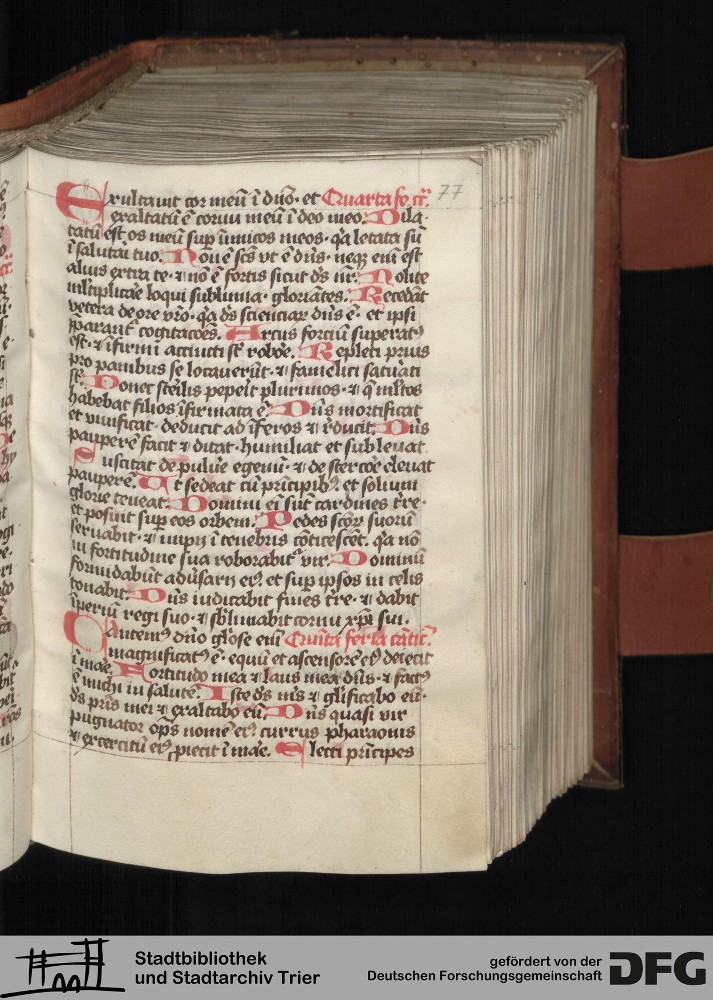 77
Exultauit cor meū ī dno· et Quarta fe cᷓ.
exaltatū ē cornu meū ī deo meo. Dila
tatū est os meū sup inimicos meos· qa letata sū
ī salutari tuo. Non ē scs vt ē dns· neqꝫ eni est
alius extra te· ⁊ nō ē fortis sicut ds nr. Nolite
mltiplicare loqui sublimia· gloriātes. Recedāt
vetera de ore vro· qa ds scienciarꝫ dns ē· et ipsi
p̄parant᷑ cogitacōes. Arcus forciū superatꝰ
est· ⁊ īfirmi accincti st robore. Repleti prius
pro panibus se locauerūt· ⁊ famelici saturati
st. Donec sterilis peperit plurimos· ⁊ q mltos
habebat filios īfirmata ē. Dns mortificat
et viuificat· deducit ad īferos ⁊ rducit. Dns
pauperē facit ⁊ ditat· humiliat et subleuat
Suscitat de puluere egenū· ⁊ de stercore eleuat
pauperē. Ut sedeat cū prīcipibꝰ· et solium
glorie teneat. Domini eī sūt cardines tre·
et posuit sup eos orbem. Pedes scōrꝫ suorū
seruabit· ⁊ impij ī tenebris cōticescēt· qa nō
in fortitudine sua roborabit᷑ vir. Dominū
formidabūt aduersarij eiꝰ· et sup ipsos in celis
tonabit. Dns iudicabit fines tre· ⁊ dabit
īperiū regi suo· ⁊ sblimabit cornu xpi sui.
Cantemꝰ dno gliose eni Quīta feria cātic.
magnificatꝰ ē· equū et ascensorē eiꝰ deiecit
ī mare. Fortitudo mea ⁊ laus mea dns· ⁊ factꝰ
ē michi in salutē. Iste ds ms ⁊ glificabo eū·
ds pris mei ⁊ exaltabo eū. Dns quasi vir
pugnator ops nomē eiꝰ· currus pharaonis
⁊ exercitū eiꝰ piecit ī mare. Electi prīcipes
Stadtbibliothek
und Stadtarchiv Trier
gefördert von der
Deutschen Forschungsgemeinschaft DFG